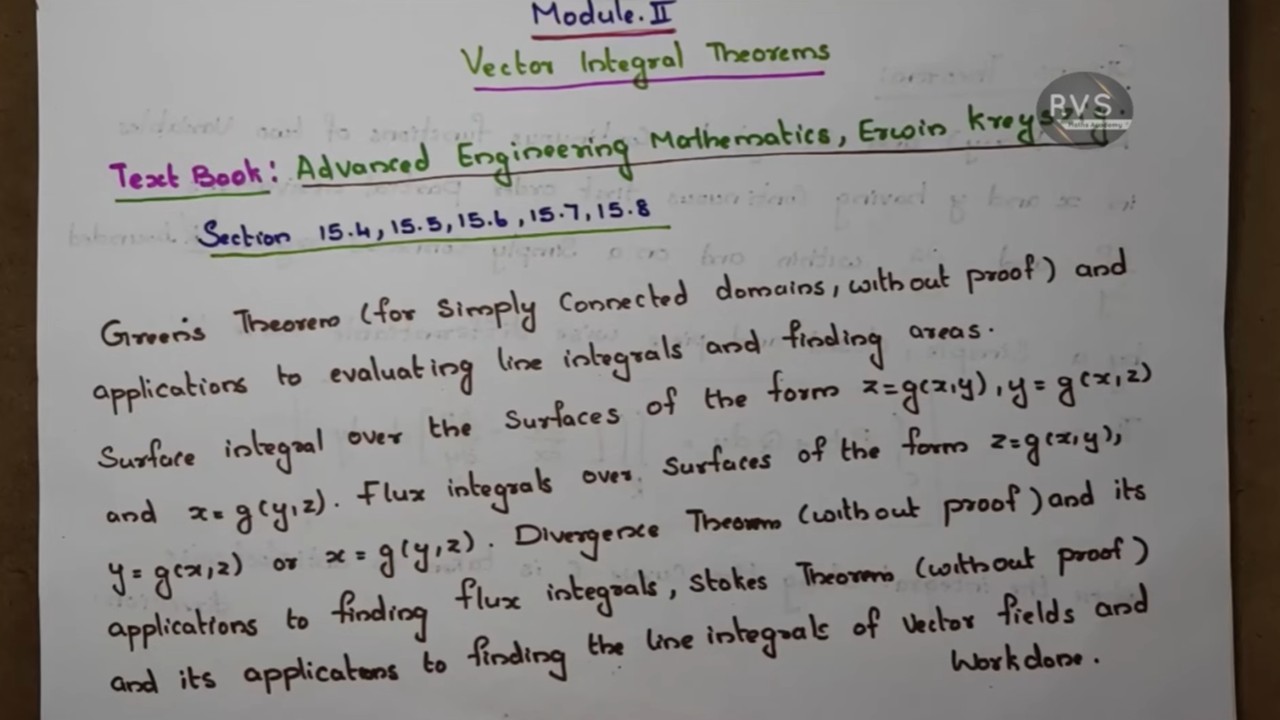 Module. II
Vector Integral Theorems
RVS
Maths Academy
Text Book: Advanced Engineering Mathematics, Erwin Kreyszig.
Section 15.4, 15.5, 15.6, 15.7, 15.8
Green's Theorem (for Simply Connected domains, without proof) and
applications to evaluating line integrals and finding areas.
Surface integral over the Surfaces of the form z=g(x,y), y = g(x,z)
and x = g(y,z). Flux integrals over surfaces of the form z=g(x,y),
y = g(x,z) or x = g(y,z). Divergence Theorem (without proof) and its
applications to finding flux integrals, Stokes Theorem (without proof)
and its applicatons to finding the line integrals of vector fields and
Work done.